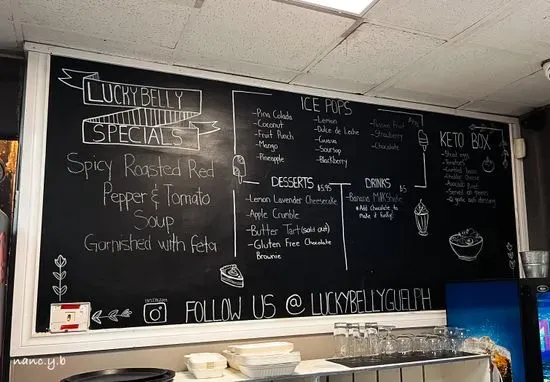 LUCKY BELLY
SPECIALS
Spicy Roasted Red
Pepper & Tomato
Soup
Garnished with feta
ICE POPS
- Pina Colada
- Coconut
- Fruit Punch
- Mango
- Pineapple
- Lemon
- Dulce de Leche
- Guava
- Soursop
- Blackberry
- Passion Fruit
- Strawberry
- Chocolate
DESSERTS $5.95
- Lemon Lavender Cheesecake
- Apple Crumble
- Butter Tart (sold out)
- Gluten Free Chocolate
Brownie
DRINKS $5
- Banana Milkshake
* Add Chocolate to
make it funky!
KETO BOX
INSTAGRAM
FOLLOW US @ LUCKYBELLYGUELPH
nanc.y.b